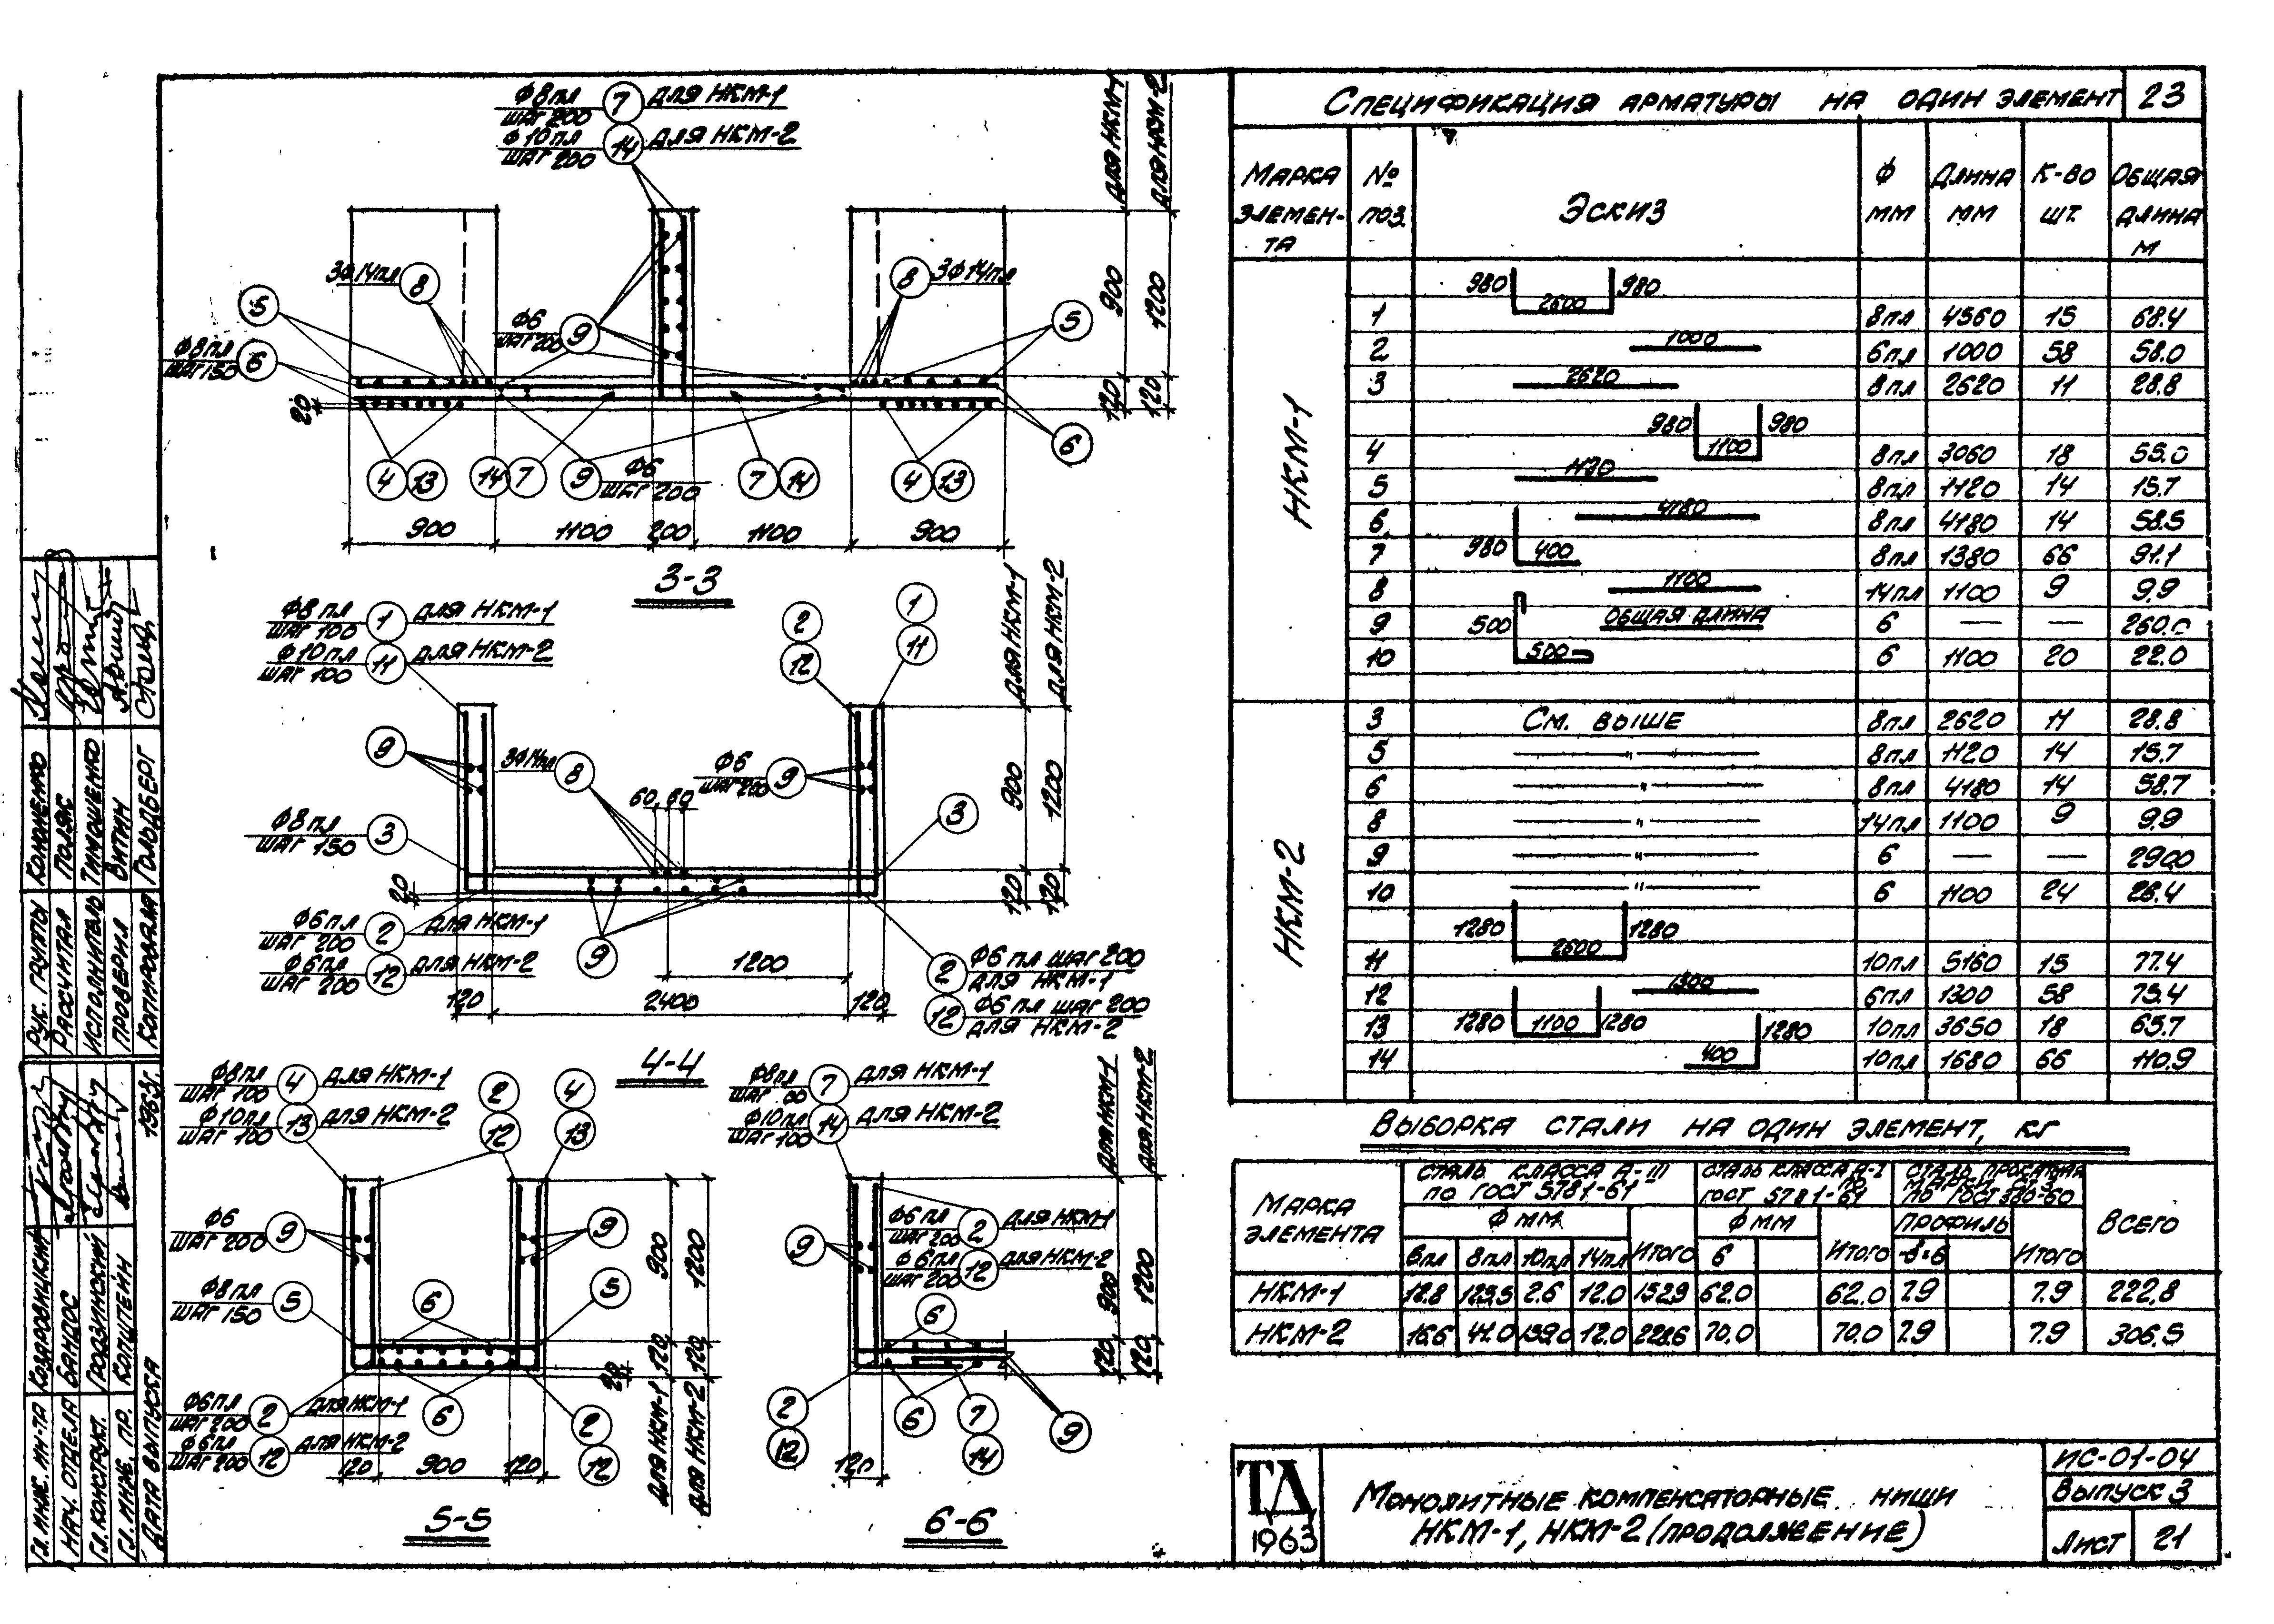 Ф8пл шаг 200 7 для НКМ-1
Ф10пл шаг 200 14 для НКМ-2
для НКМ-1
для НКМ-2
3Ф14пл 8
8 3Ф14пл
5
Ф6 шаг 200 9
5
Ф8пл шаг 150 6
900
1200
120
120
20
6
4 13
14 7
9 Ф6 шаг 200
7 14
4 13
900
1100
200
1100
900
3-3
Ф8пл шаг 100 1 для НКМ-1
Ф10пл шаг 100 11 для НКМ-2
2
12
1
11
для НКМ-1
для НКМ-2
9
3Ф14пл 8
Ф6 шаг 200 9
60 60
Ф8пл шаг 150 3
3
900
1200
20
120
120
Ф6пл шаг 200 2 для НКМ-1
Ф6пл шаг 200 12 для НКМ-2
9
1200
2 Ф6 пл шаг 200 для НКМ-1
12 Ф6 пл шаг 200 для НКМ-2
120
2400
120
4-4
Ф8пл шаг 100 4 для НКМ-1
Ф10пл шаг 100 13 для НКМ-2
2
12
4
13
Ф6 шаг 200 9
9
Ф8пл шаг 150 5
6
5
900
1200
120
120
20
Ф6пл шаг 200 2 для НКМ-1
Ф6пл шаг 200 12 для НКМ-2
6
2
12
для НКМ-1
для НКМ-2
120
900
120
5-5
Ф8пл 7 для НКМ-1
Ф10пл шаг 100 14 для НКМ-2
для НКМ-1
для НКМ-2
9
Ф6пл шаг 200 2 для НКМ-1
Ф6пл шаг 200 12 для НКМ-2
6
900
1200
120
120
2
12
6
7
14
9
120
6-6
Спецификация арматуры на один элемент 23
Марка элемента № поз. Эскиз ф мм Длина мм К-во шт. Общая длина м
НКМ-1
980 2600 980
1 8пл 4560 15 68.4
1000
2 6пл 1000 58 58.0
2620
3 8пл 2620 11 28.8
980 1100 980
4 8пл 3060 18 55.0
1120
5 8пл 1120 14 15.7
4180
6 8пл 4180 14 58.5
980 400
7 8пл 1380 66 91.1
1100
8 14пл 1100 9 9.9
500 общая длина
9 6 — — 260.0
500
10 6 1100 20 22.0
НКМ-2
3 См. выше 8пл 2620 11 28.8
5 —"— 8пл 1120 14 15.7
6 —"— 8пл 4180 14 58.7
8 —"— 14пл 1100 9 9.9
9 —"— 6 — — 290.0
10 —"— 6 1100 24 26.4
1280 2600 1280
11 10пл 5160 15 77.4
1300
12 6пл 1300 58 75.4
1280 1100 1280
13 10пл 3650 18 65.7
400 1280
14 10пл 1680 66 110.9
Выборка стали на один элемент, кг
Марка элемента
Сталь класса А-III по ГОСТ 5781-61
Сталь класса А-I по ГОСТ 5781-61
Сталь прокатная марки по ГОСТ 380-60
Всего
ф мм Итого ф мм Итого профиль Итого
6пл 8пл 10пл 14пл 6 -δ=6
НКМ-1 12.8 123.5 2.6 12.0 152.9 62.0 62.0 7.9 7.9 222.8
НКМ-2 16.6 41.0 159.0 12.0 228.6 70.0 70.0 7.9 7.9 306.5
ТД
1963
Монолитные компенсаторные ниши
НКМ-1, НКМ-2 (продолжение)
ИС-01-04
Выпуск 3
Лист 21
Рук. группы Коноченко
Рассчитал Поляк
Исполнитель Тимошенко
Проверил Витин
Копировала Гольдберг
Гл. инж. ин-та Казаровицкий
Нач. отдела Бандос
Гл. конструкт. Гродзинский
Гл. инж. пр. Копштейн
Дата выпуска 1963г.